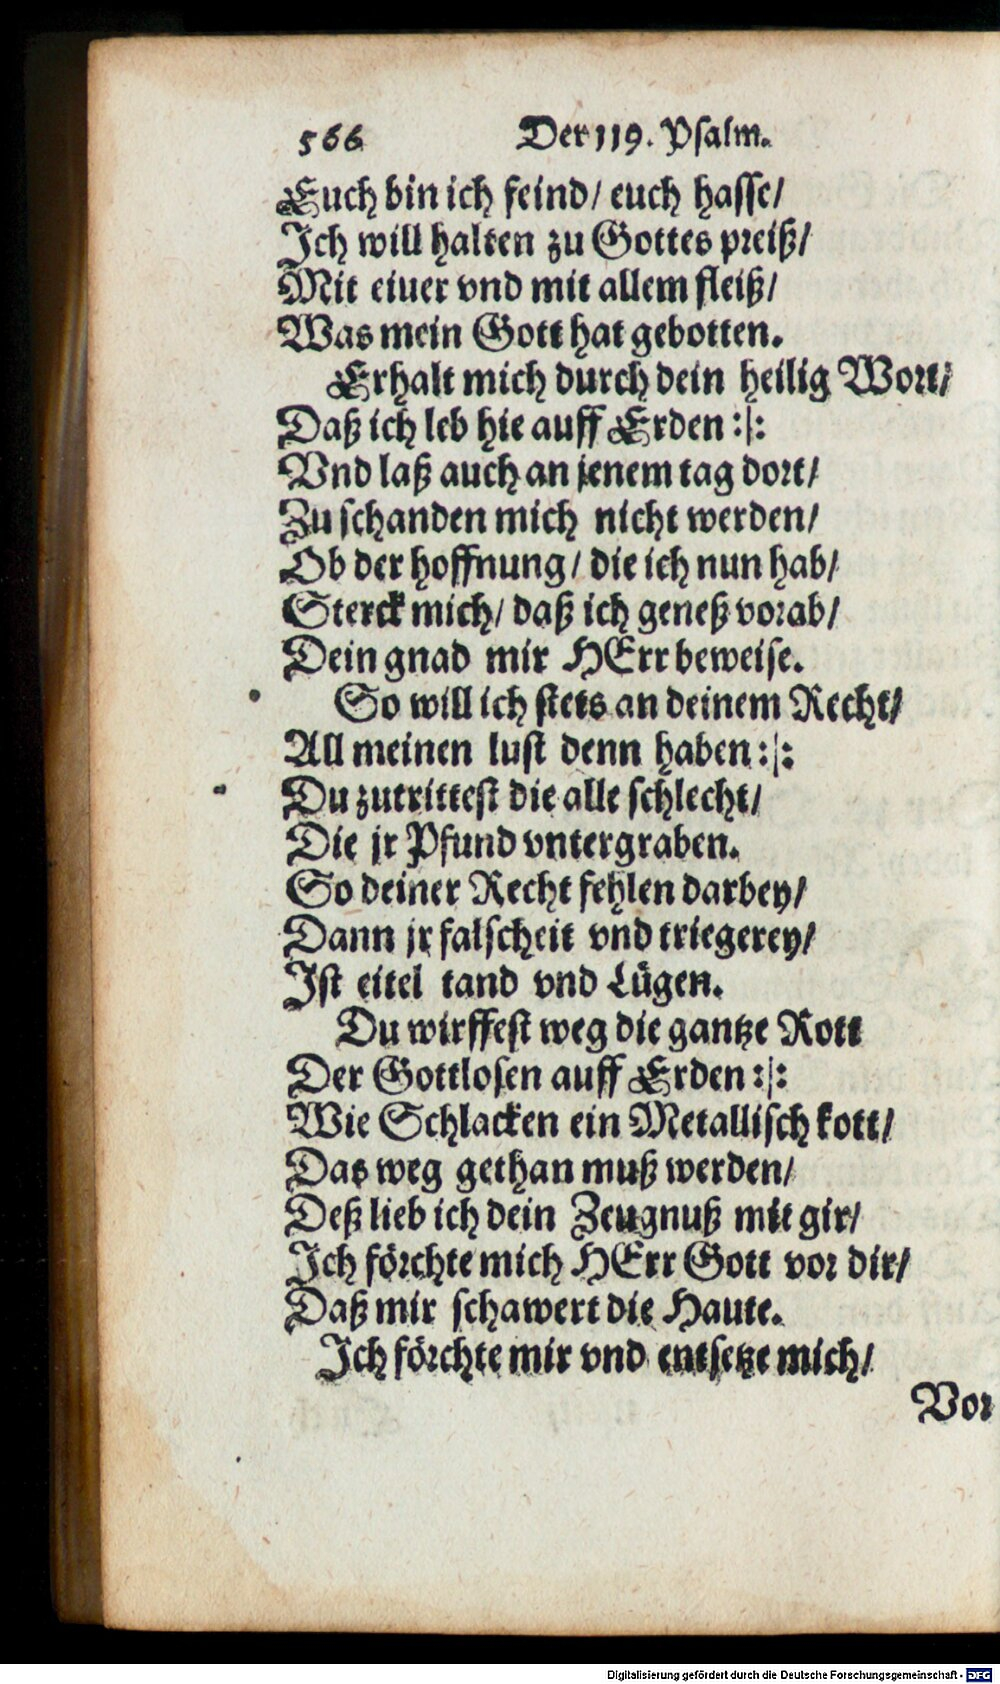 566 Der 119. Psalm.
Euch bin ich feind/ euch hasse/
Ich will halten zu Gottes preiß/
Mit eiuer vnd mit allem fleiß/
Was mein Gott hat gebotten.
Erhalt mich durch dein heilig Wort/
Daß ich leb hie auff Erden :|:
Vnd laß auch an jenem tag dort/
Zu schanden mich nicht werden/
Ob der hoffnung/ die ich nun hab/
Sterck mich/ daß ich geneß vorab/
Dein gnad mir HErr beweise.
So will ich stets an deinem Recht/
All meinen lust denn haben :|:
Du zutrittest die alle schlecht/
Die jr Pfund vntergraben.
So deiner Recht fehlen darbey/
Dann jr falscheit vnd triegerey/
Ist eitel tand vnd Lügen.
Du wirffest weg die gantze Rott
Der Gottlosen auff Erden :|:
Wie Schlacken ein Metallisch kott/
Das weg gethan muß werden/
Deß lieb ich dein Zeugnuß mit gir/
Ich förchte mich HErr Gott vor dir/
Daß mir schawert die Haute.
Ich förchte mir vnd entsetze mich/
Vor
Digitalisierung gefördert durch die Deutsche Forschungsgemeinschaft - DFG